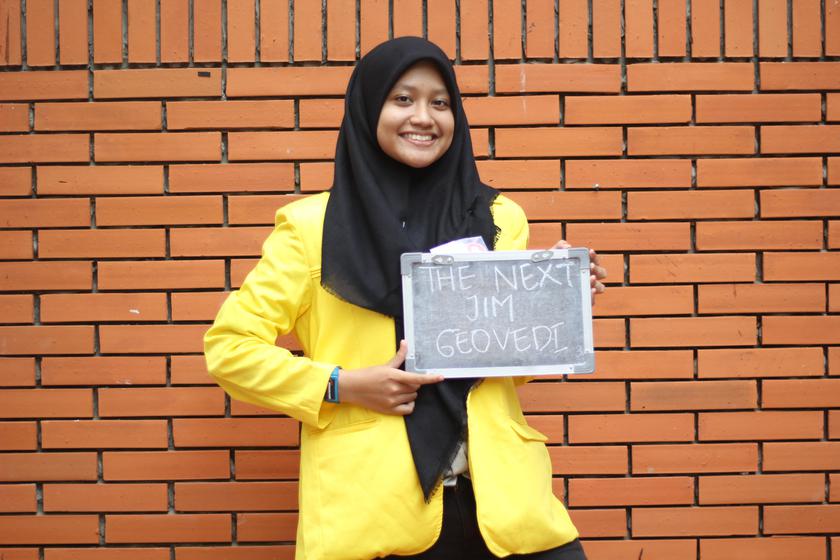 THE NEXT
JIM
GEOVEDI